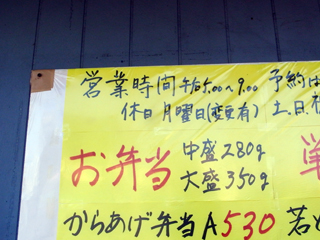 営業時間 午后5:00〜9:00 予約は
休日 月曜日(変更有) 土.日.祝
お弁当 中盛280g
大盛350g
からあげ弁当A530 若